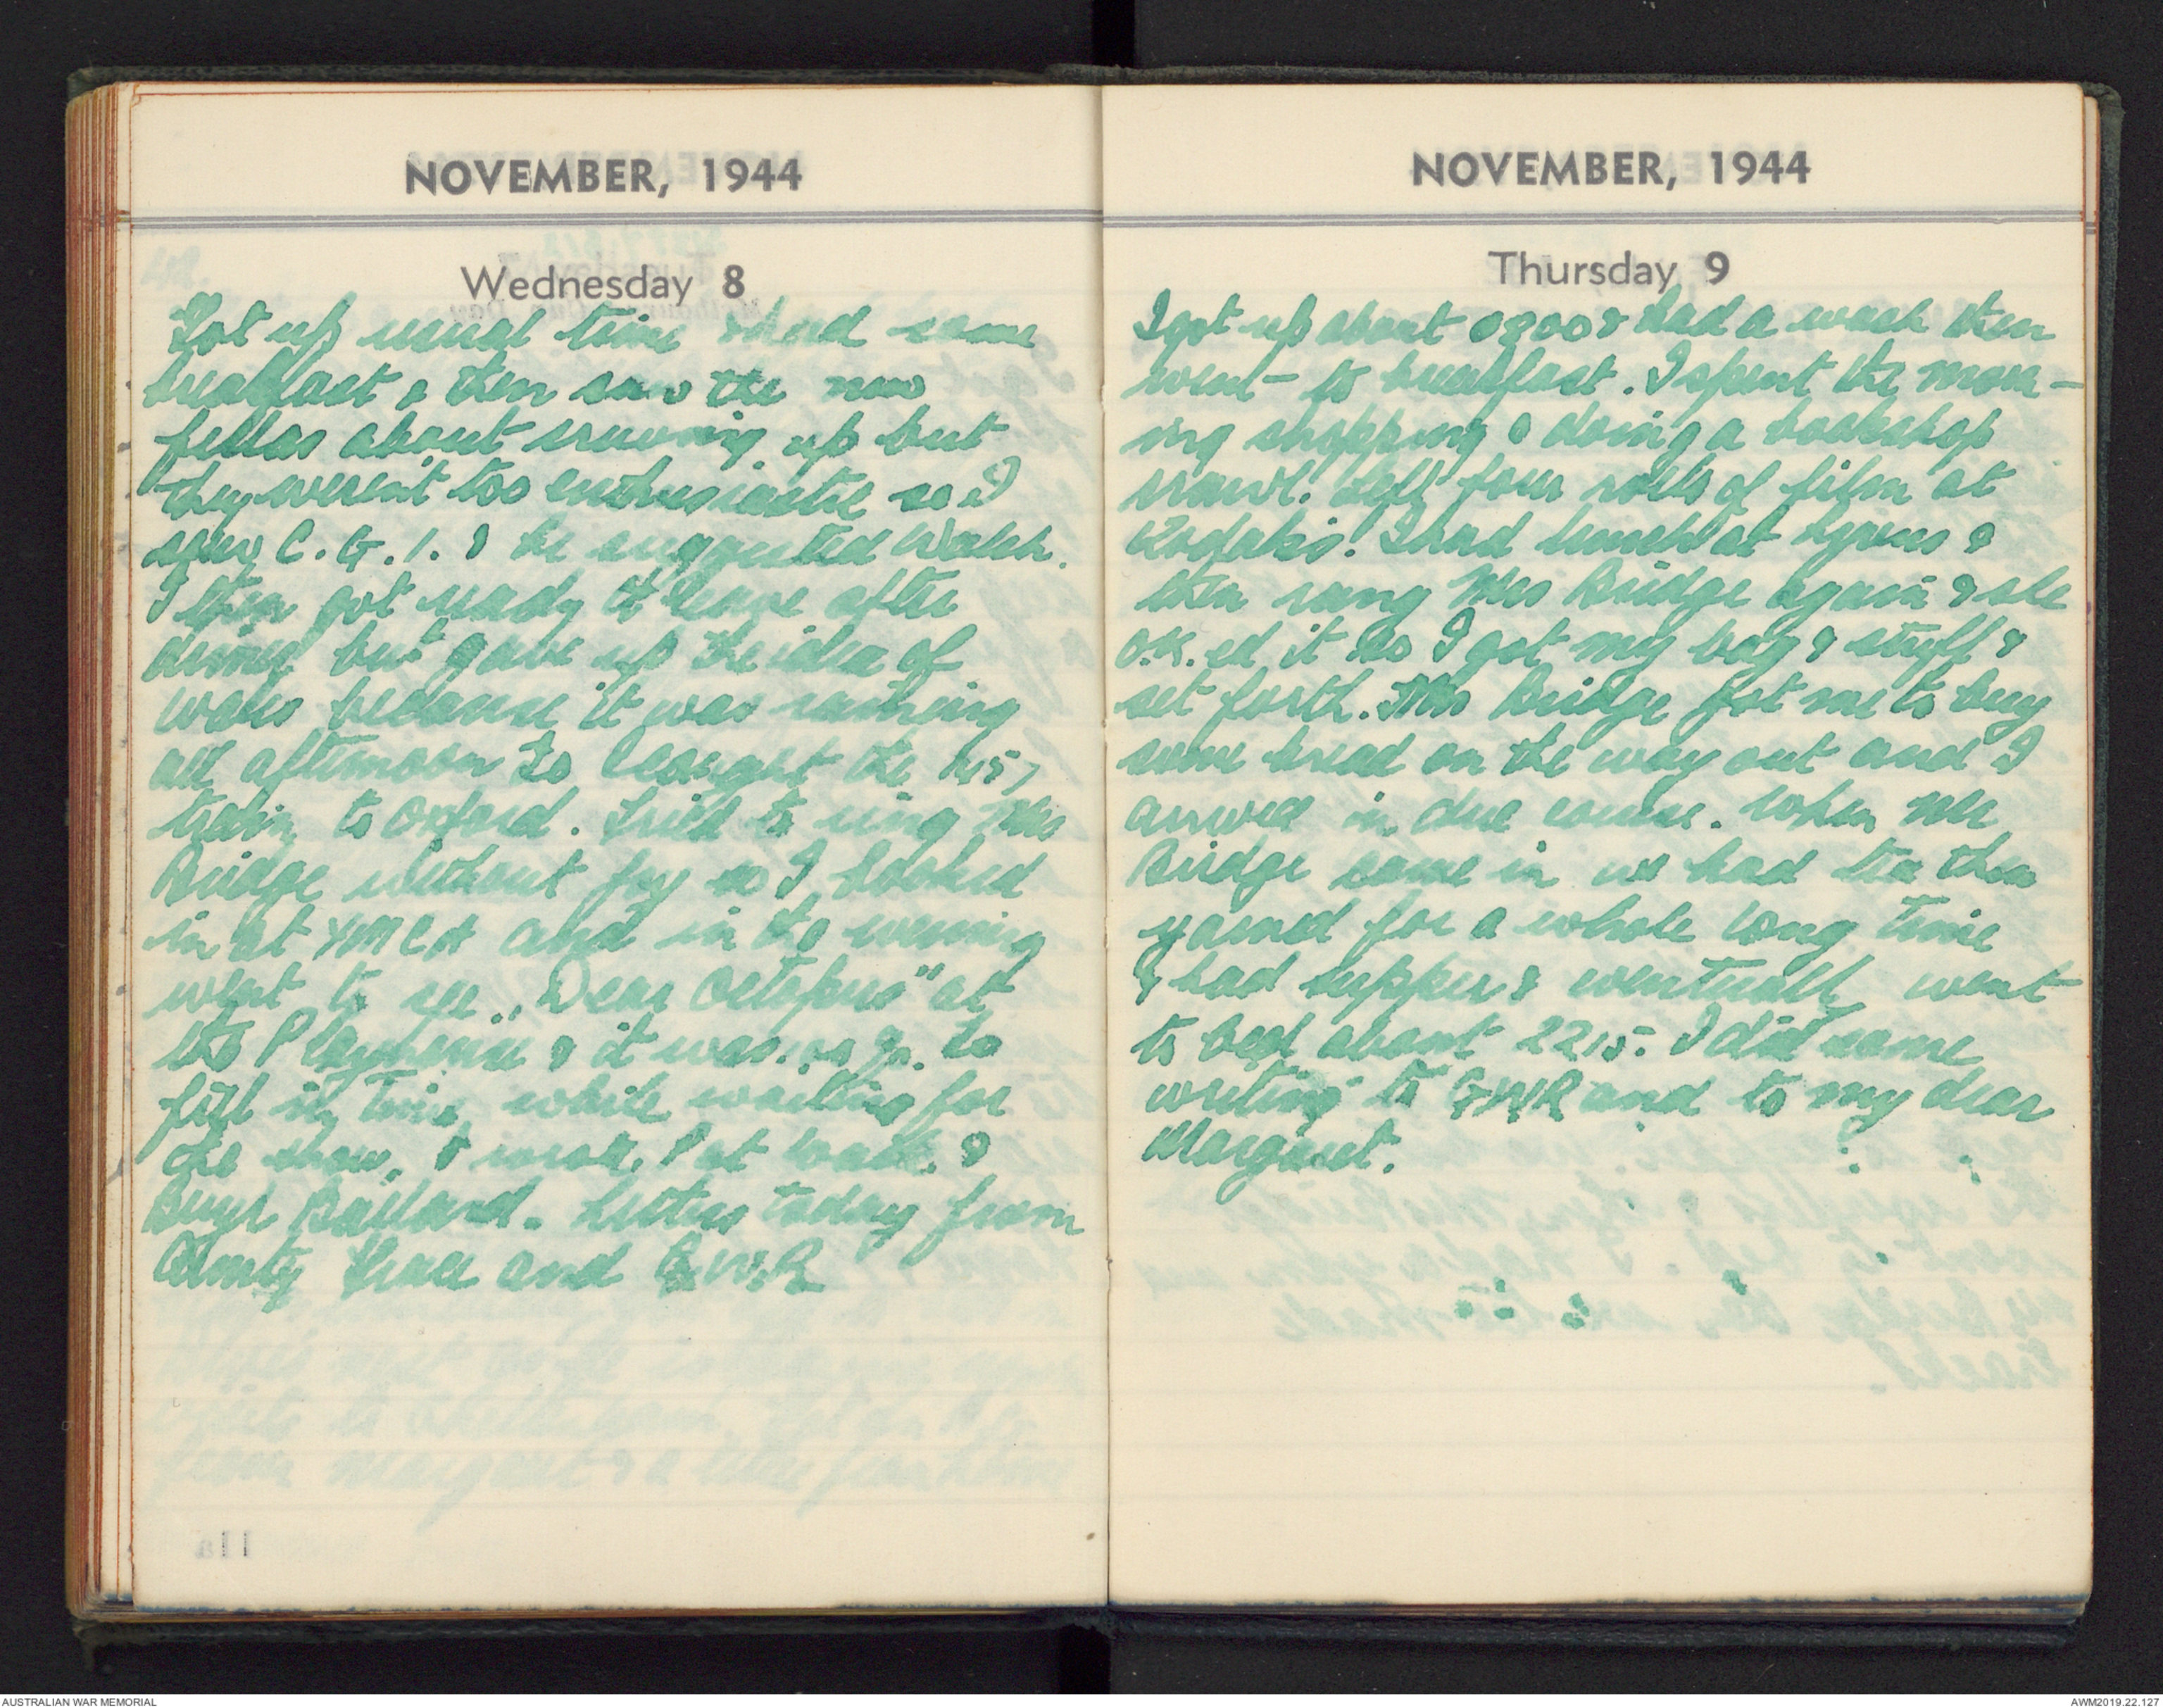 NOVEMBER, 1944
Wednesday 8
Got up usual time & had some
breakfast & then saw the new
fellas about crewing up but
they weren't too enthusiastic so I
saw C.G.I. & he suggested Walsh.
I then got ready to leave after
dinner but gave up the idea of
Wales because it was raining
all afternoon so I caught the
train to Oxford. Tried to ring Mrs
Bridge without joy so I booked
in at YMCA and in the evening
went to see "Dear Octopus" at
the Playhouse & it was To
fill in time while waiting for
the show, I wrote Pat &
Beryl Ballard. Letters today from
Aunty Grace and G.W.R
NOVEMBER, 1944
Thursday 9
I got up about 0800 & had a wash then
went to breakfast. I spent the morn-
ing shopping & doing a bookshop
crawl. Left four rolls of film at
Kodaks. I had lunch at &
then rang Mrs Bridge again & she
O.K.ed it so I got my bag & stuff &
set forth. Mrs Bridge got me to buy
some bread on the way out and I
arrived in due course. When Mr
Bridge came in we had tea then
yarned for a whole long time
& had supper & eventually went
to bed about 2215. I did some
writing to GWR and to my dear
Margaret.
AUSTRALIAN WAR MEMORIAL
AWM2019.22.127